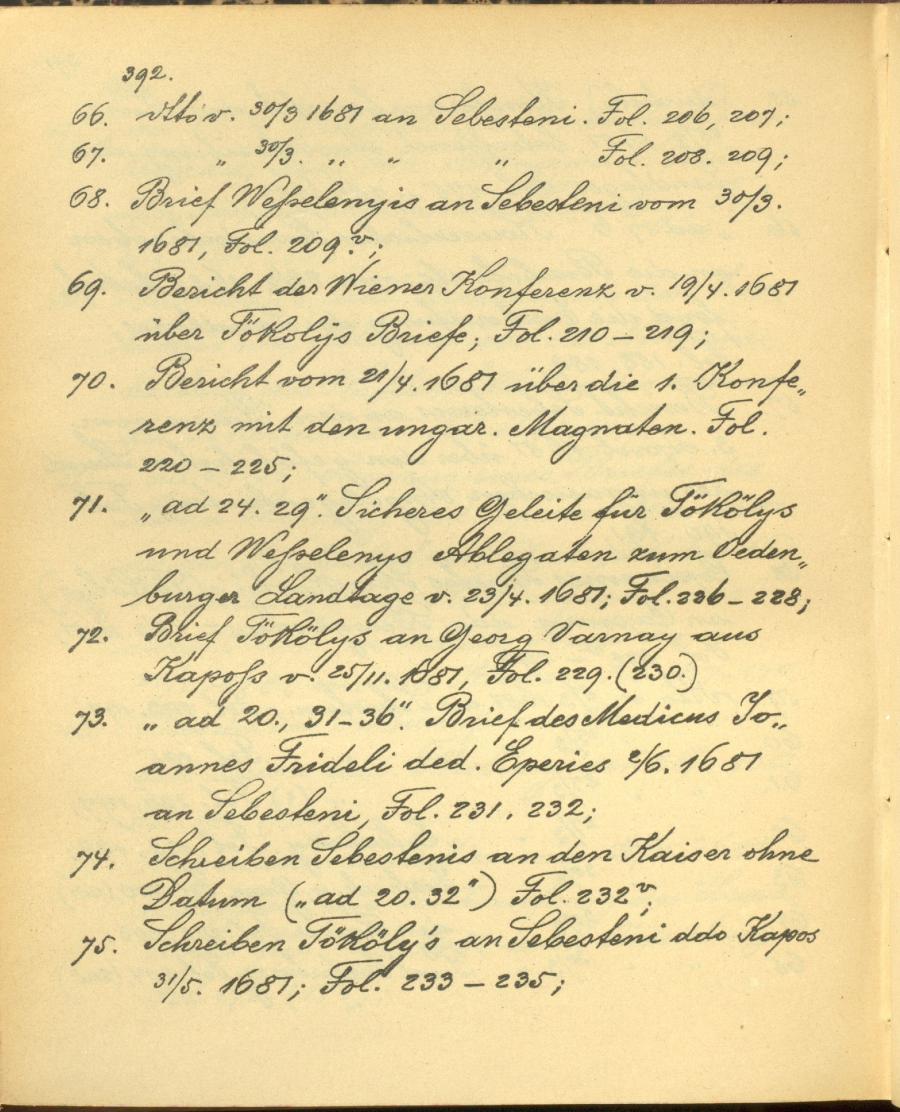 392.
66. dtto v. 30/3 1681 an Sebesteni. Fol. 206, 207;
67. „ 30/3. „ „ „ Fol. 208. 209;
68. Brief Weßelenyis an Sebesteni vom 30/3.
1681, Fol. 209 v;
69. Bericht der Wiener Konferenz v. 19/4. 1681
über Tökolÿs Briefe; Fol. 210 – 219;
70. Bericht vom 21/4. 1681 über die 1. Konfe„
renz mit den ungar. Magnaten. Fol.
220 – 225;
71. „ad 24. 29". Sicheres Geleite für Tökölys
und Weßelenys Ablegaten zum Oeden„
burger Landtage v. 23/4. 1681; Fol. 226 – 228;
72. Brief Tökölys an Georg Varnay aus
Kaposs v. 25/11. 1681, Fol. 229. (230.)
73. „ ad 20., 31–36". Brief des Medicus Jo„
annes Frideli ded. Eperies 2/6. 1681
an Sebesteni, Fol. 231. 232;
74. Schreiben Sebestenis an den Kaiser ohne
Datum („ad 20. 32") Fol. 232 v;
75. Schreiben Tököly's an Sebesteni ddo Kapos
31/5. 1681; Fol. 233 – 235;